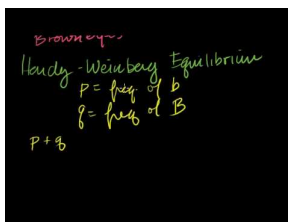 Brown eyes
Hardy-Weinberg Equilibrium
p = freq. of b
q = freq of B
p + q